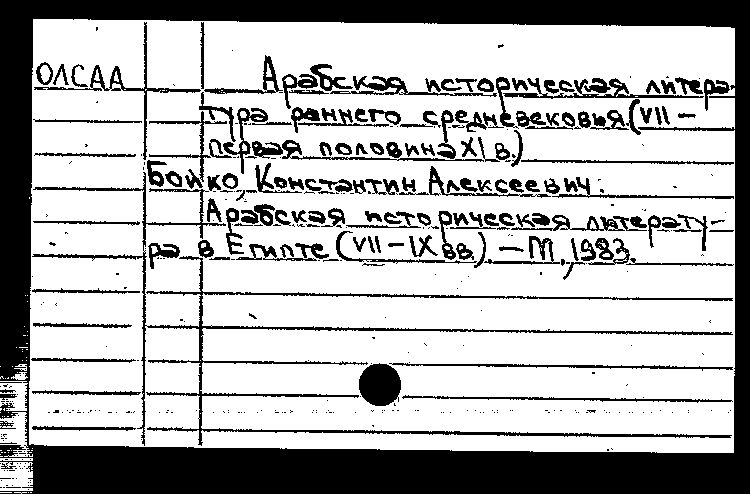 ОЛСАА
Арабская историческая литера-
тура раннего средневековья (VII –
первая половина XI в.)
Бойко, Константин Алексеевич.
Арабская историческая литерату-
ра в Египте (VII – IX вв.). – М., 1983.